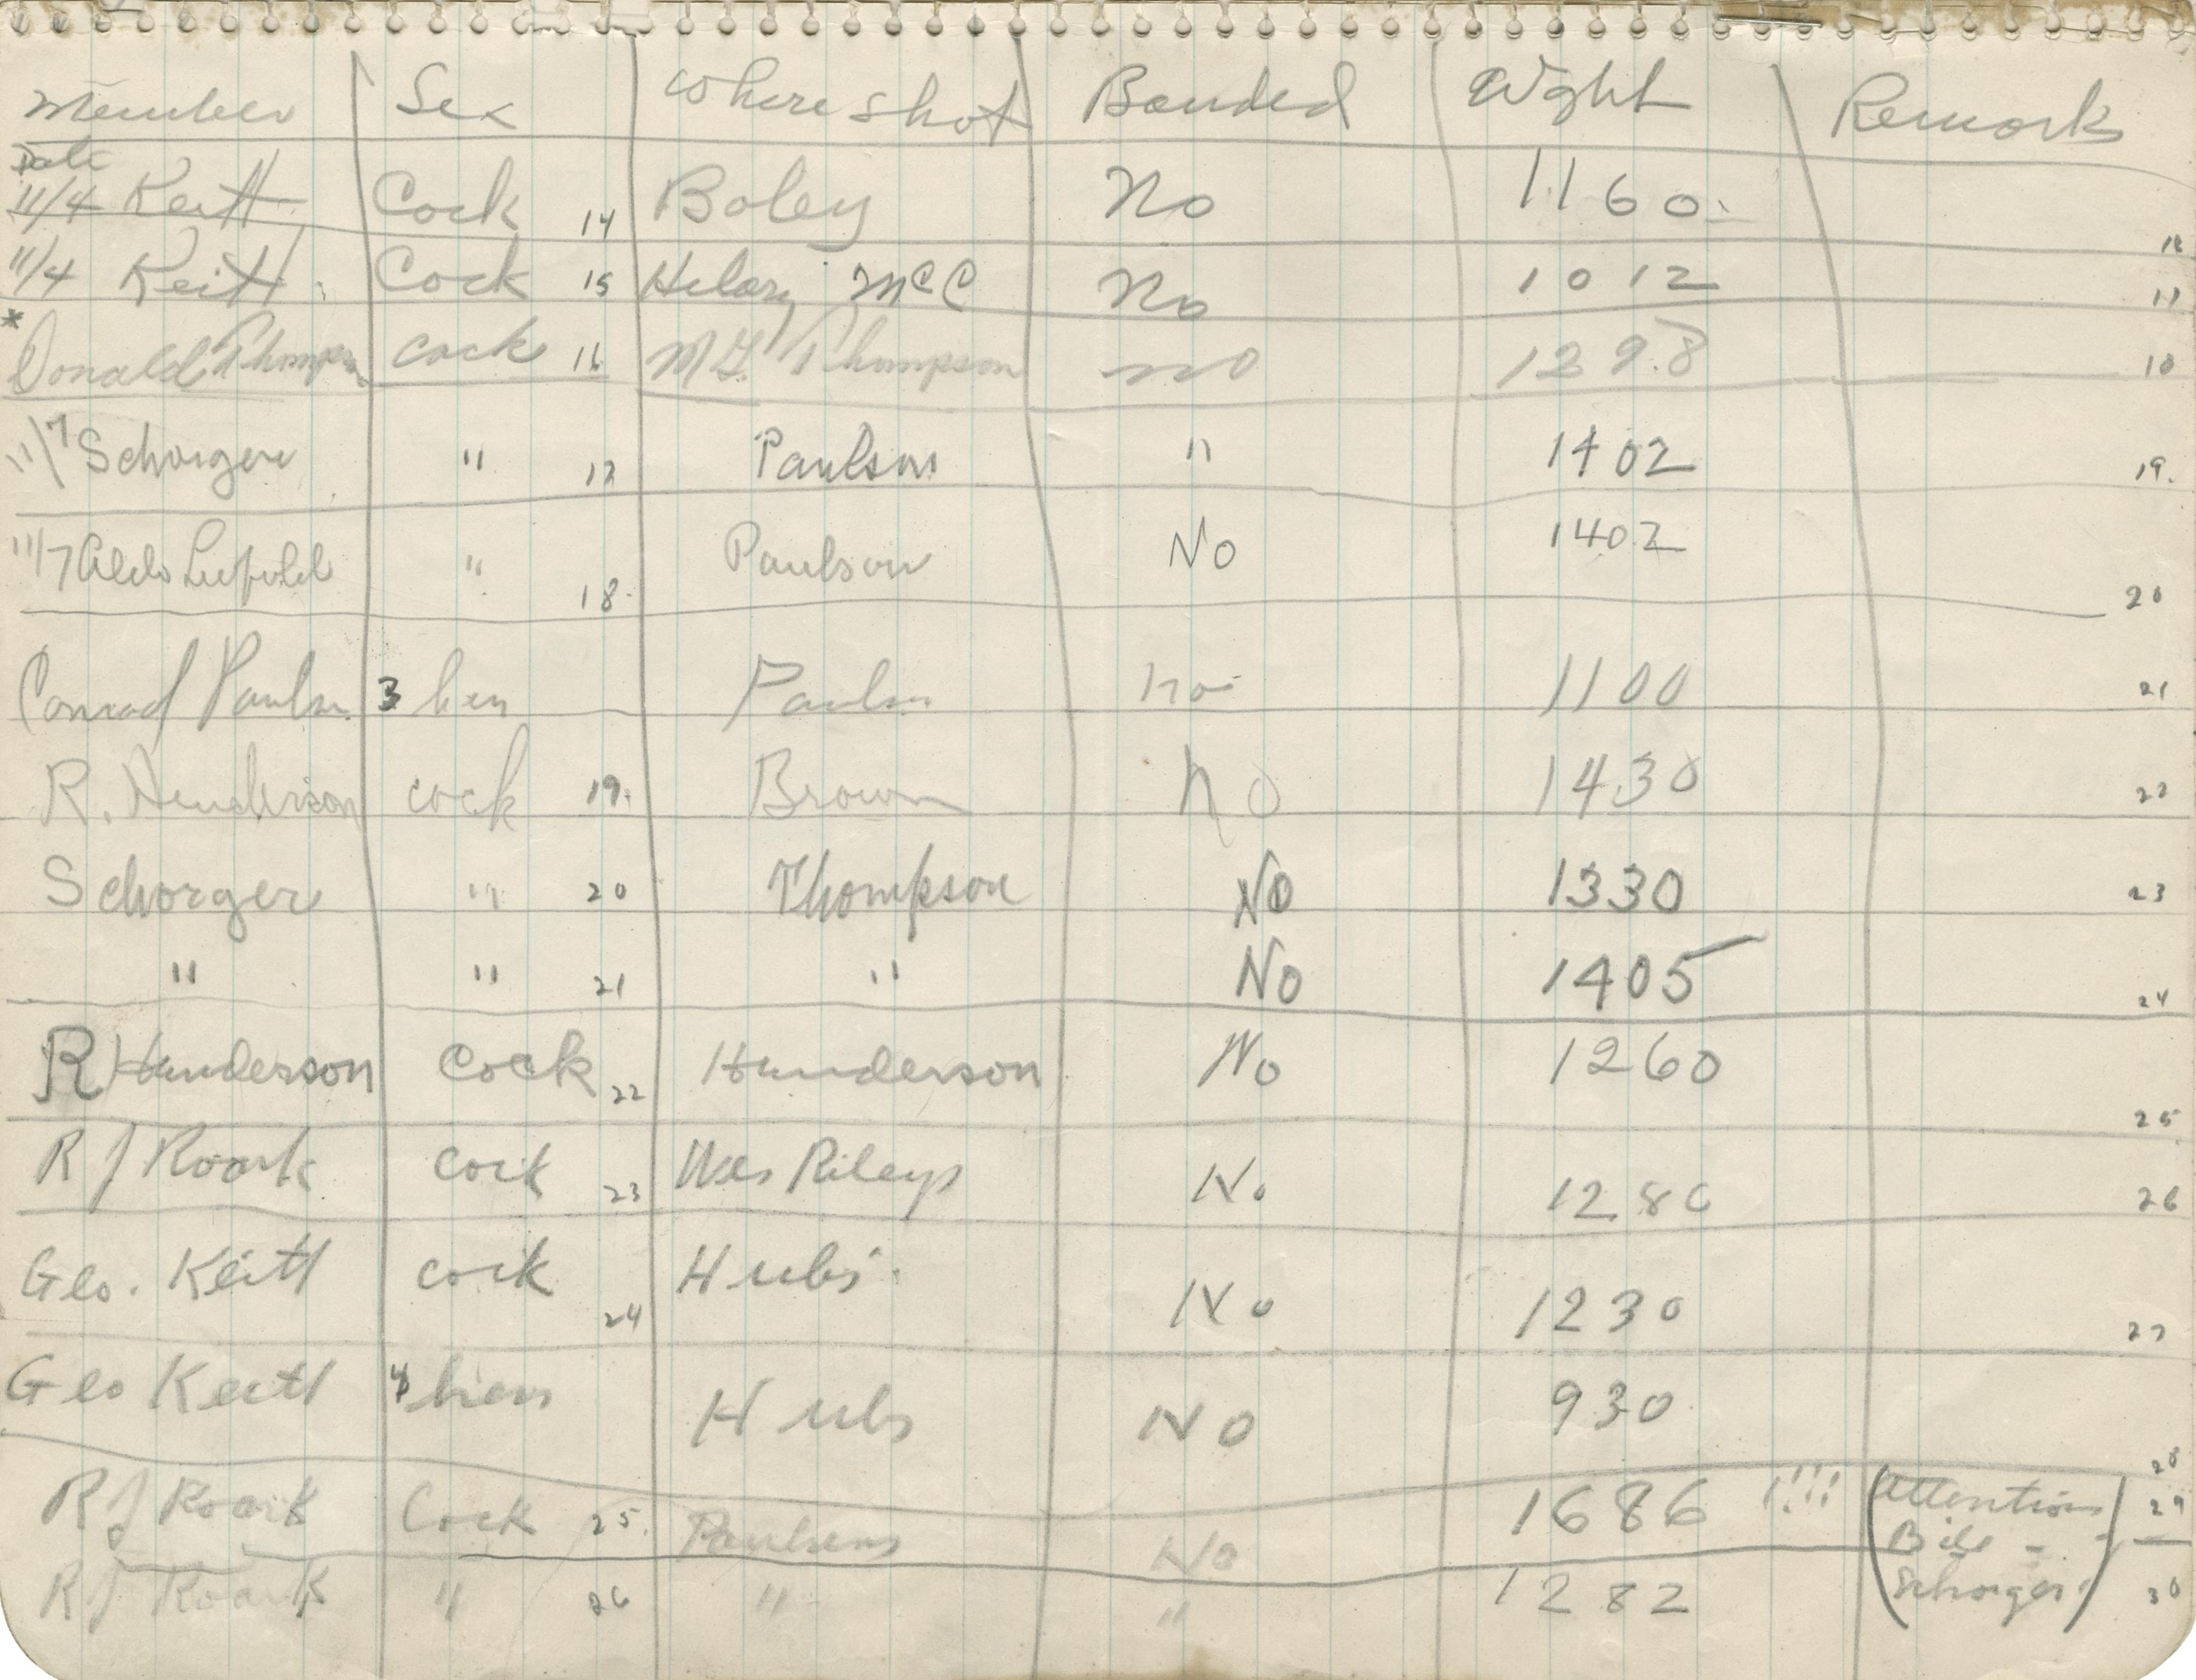 Member Sex Where shot Banded Wght Remarks
Date
11/4 Keitt Cock 14 Boley No 1160
11/4 Keitt Cock 15 Hilary McC No 1012
* Donald Thompson cock 16 M G. Thompson no 1298 18
11/7 Schorger " 17 Paulson " 1402 19.
11/7 Aldo Leopold " 18. Paulson No 1402 20
Conrad Paulsn 3 hen Paulsn no 1100 21
R. Henderson cock 19. Brown no 1430 22
Schorger " 20 Thompson No 1330 23
" " 21 " No 1405 24
R Henderson Cock 22 Henderson No 1260 25
R J Roark cock 23 Wes Rileys No 1280 26
Geo. Keitt cock 24 Hubs No 1230 27
Geo Keitt 4 hen Hubs No 930 28
R J Roark Cock 25. Paulsens No 1686 !!!! (Attention 29
Bill
R J Roark " 26 " " 1282 Schorger) 30